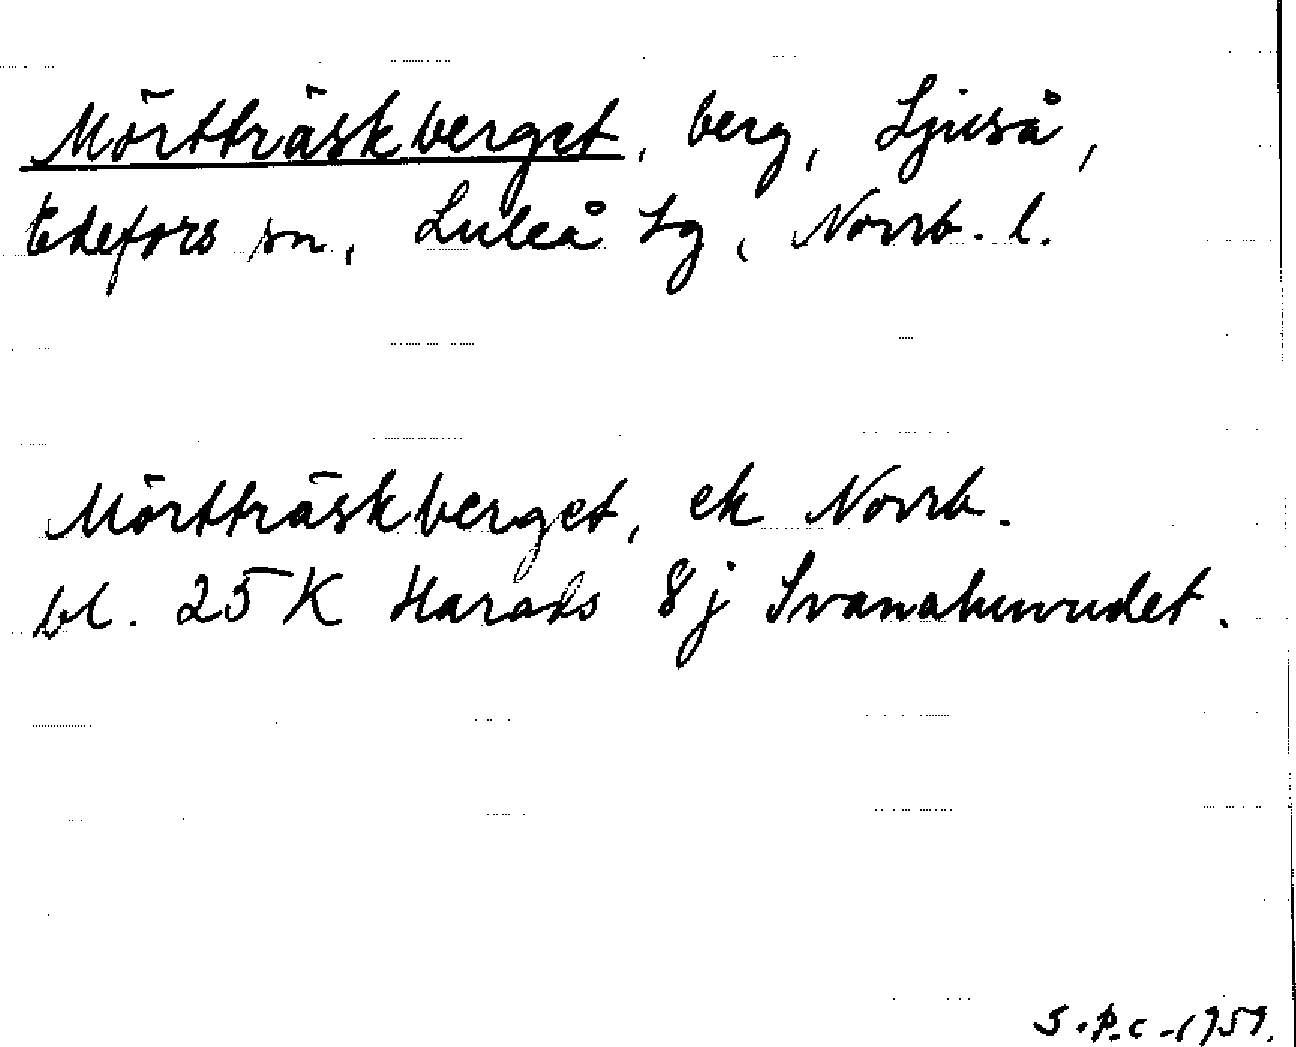 Mörtträskberget, berg, Ljuså,
Edefors sn, Luleå tg, Norrb. l.
Mörtträskberget, ek Norrb.
bl. 25 K Harads 8j Svanahuvudet.
S.P.C-1957.